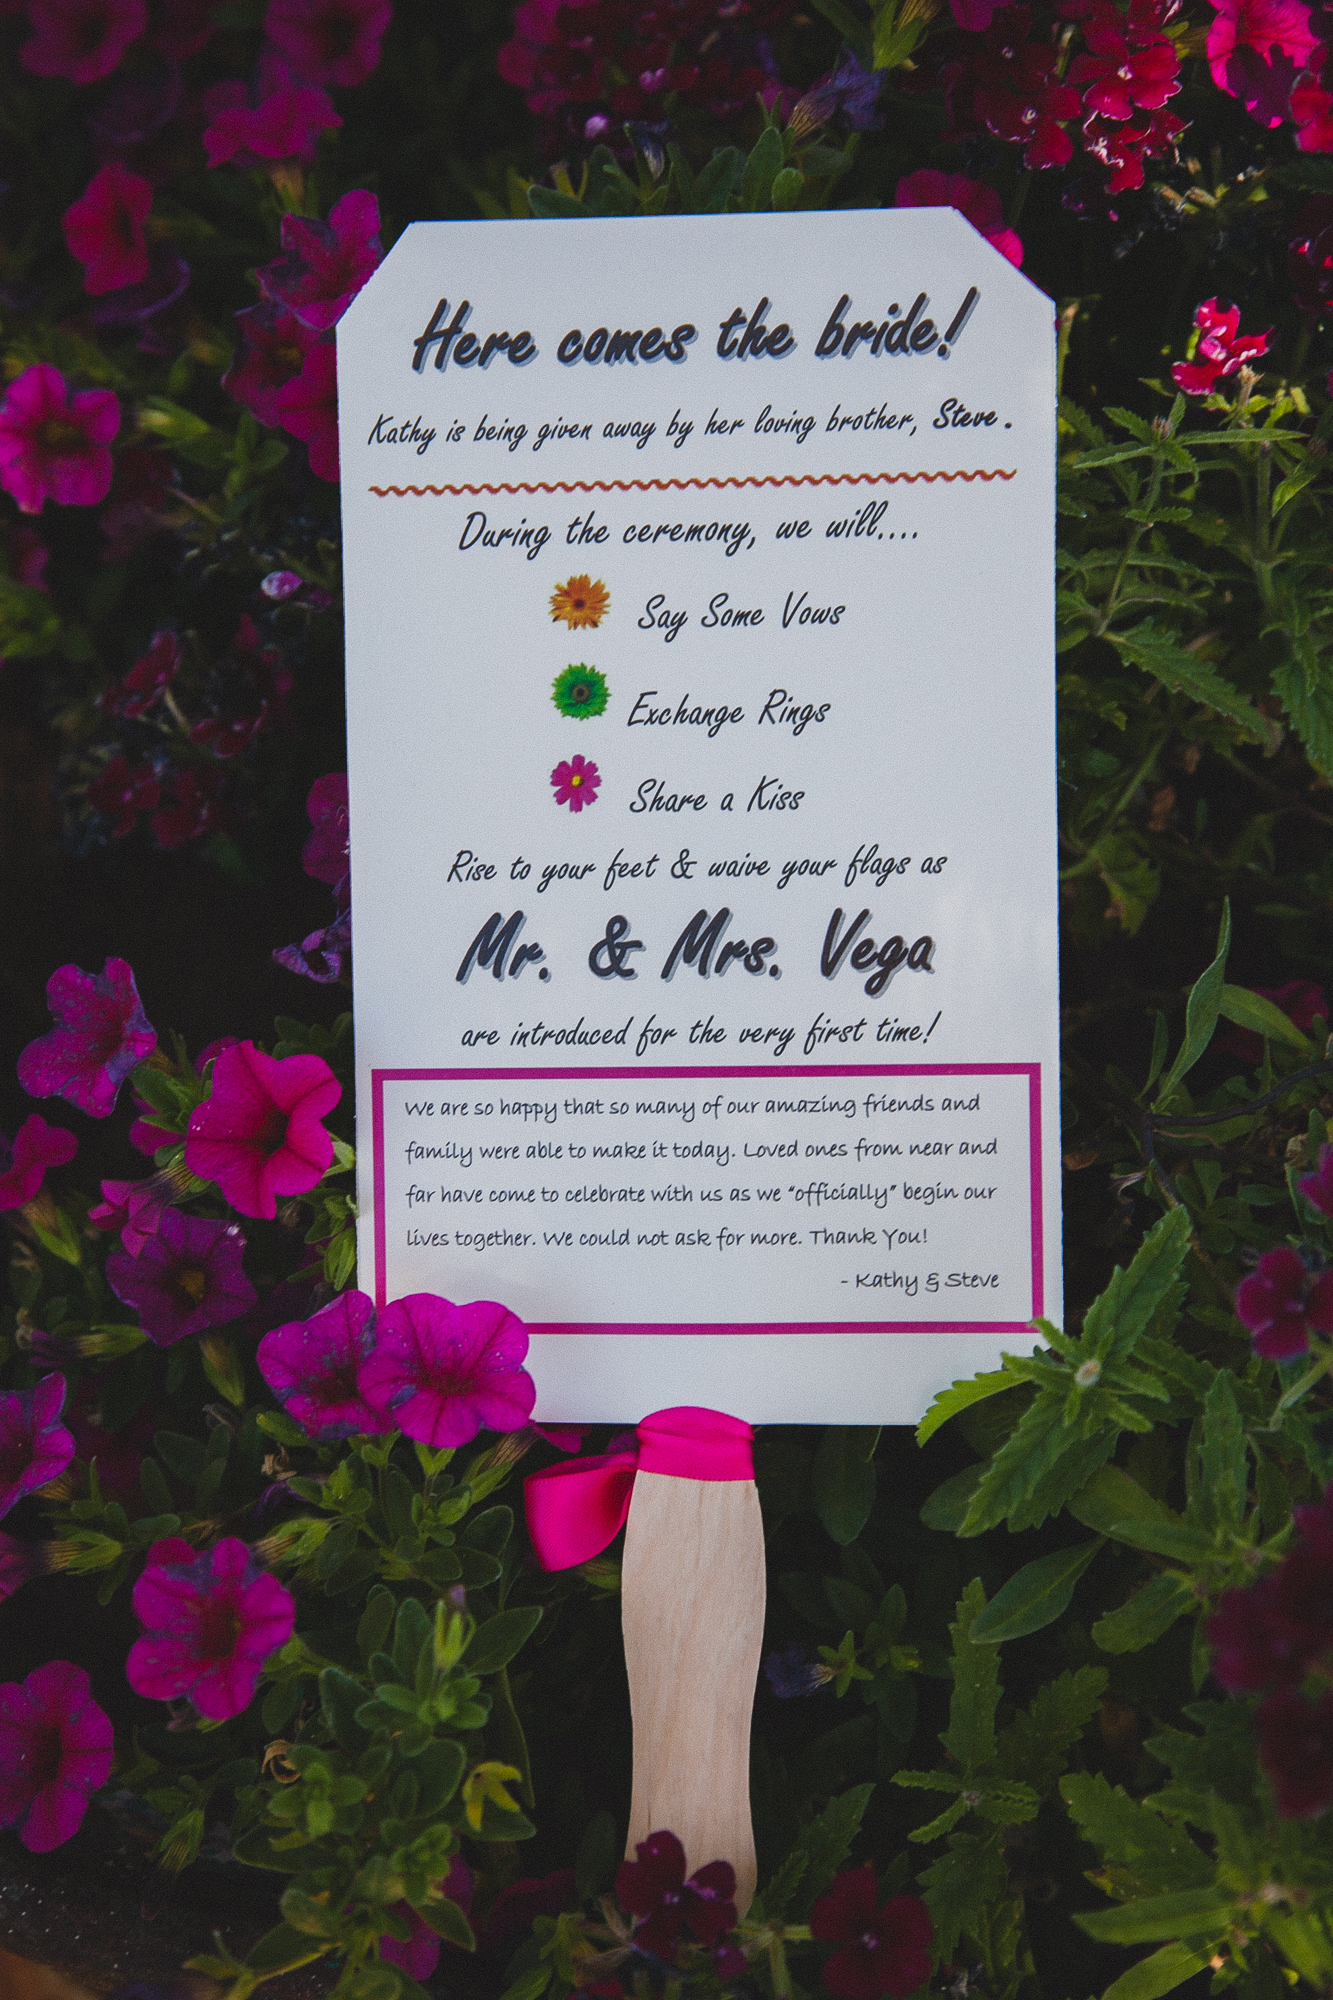 Here comes the bride!
Kathy is being given away by her loving brother, Steve.
During the ceremony, we will....
Say Some Vows
Exchange Rings
Share a Kiss
Rise to your feet & waive your flags as
Mr. & Mrs. Vega
are introduced for the very first time!
We are so happy that so many of our amazing friends and
family were able to make it today. Loved ones from near and
far have come to celebrate with us as we “officially” begin our
lives together. We could not ask for more. Thank You!
- Kathy & Steve